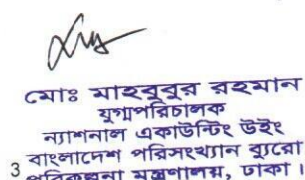 মোঃ মাহবুবুর রহমান
যুগ্মপরিচালক
ন্যাশনাল একাউন্টিং উইং
বাংলাদেশ পরিসংখ্যান ব্যুরো
3 পরিকল্পনা মন্ত্রণালয়, ঢাকা